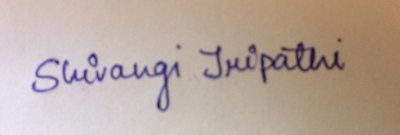 Shivangi Tripathi